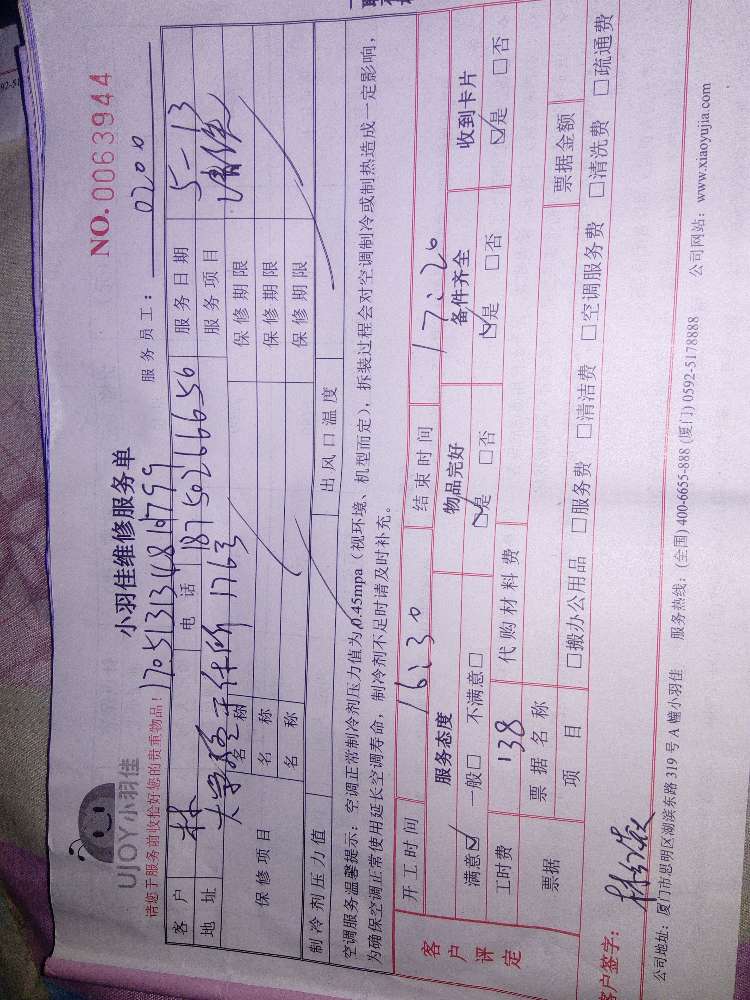 UJOY小羽佳
小羽佳维修服务单
NO. 0063944
请您于服务前收拾好您的贵重物品!
服务员工: 02000
客户 林 电话 18750266656 服务日期 5-13
地址 1763 服务项目
保修项目 名称 保修期限
名称 保修期限
名称 保修期限
制冷剂压力值 出风口温度
空调服务温馨提示:空调正常制冷剂压力值为0.45mpa(视环境、机型而定),拆装过程会对空调制冷或制热造成一定影响,
为确保空调正常使用延长空调寿命,制冷剂不足时请及时补充。
客户评定
开工时间 16:30 结束时间 17:20
服务态度 物品完好 备件齐全 收到卡片
满意☑ 一般□ 不满意□ ☑是 □否 ☑是 □否 ☑是 □否
工时费 138 代购材料费
票据 票据名称 票据金额
项目 □搬办公用品 □服务费 □清洁费 □空调服务费 □清洗费 □疏通费
客户签字:
公司地址:厦门市思明区湖滨东路319号A幢小羽佳 服务热线:(全国)400-6655-888 (厦门)0592-5178888 公司网站:www.xiaoyujia.com